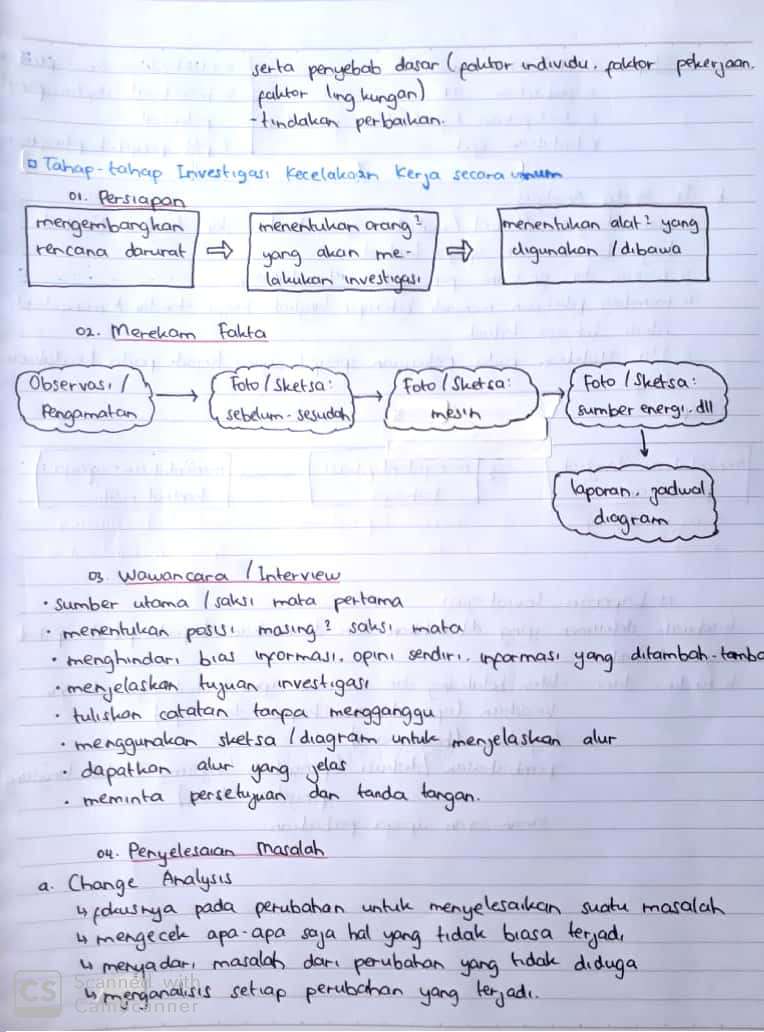 serta penyebab dasar (faktor individu, faktor pekerjaan,
faktor lingkungan)
- tindakan perbaikan.
Tahap-tahap Investigasi Kecelakaan Kerja secara umum
01. Persiapan
mengembangkan
rencana darurat
menentukan orang²
yang akan me-
lakukan investigasi
menentukan alat² yang
digunakan / dibawa
02. Merekam Fakta
Observasi /
Pengamatan
Foto / Sketsa:
sebelum-sesudah
Foto / Sketsa:
mesin
Foto / Sketsa:
sumber energi, dll
laporan, jadwal,
diagram
03. Wawancara / Interview
• sumber utama / saksi mata pertama
• menentukan posisi masing² saksi mata
• menghindari bias informasi, opini sendiri, informasi yang ditambah-tamba
• menjelaskan tujuan investigasi
• tuliskan catatan tanpa mengganggu
• menggunakan sketsa / diagram untuk menjelaskan alur
• dapatkan alur yang jelas
• meminta persetujuan dan tanda tangan.
04. Penyelesaian Masalah
a. Change Analysis
↳ fokusnya pada perubahan untuk menyelesaikan suatu masalah
↳ mengecek apa-apa saja hal yang tidak biasa terjadi
↳ menyadari masalah dari perubahan yang tidak diduga
↳ menganalisis setiap perubahan yang terjadi.
CS Scanned with
CamScanner